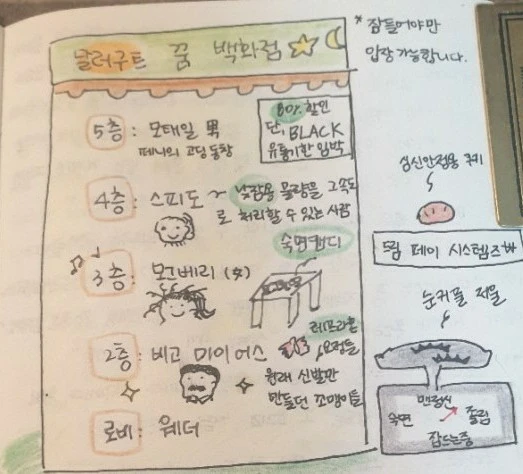 달러구트 꿈 백화점
* 잠들어야만
입장 가능합니다.
5층 : 모태일 男
페니의 고딩 동창
80% 할인
단, BLACK
유통기한 임박
4층 : 스피도 ~ 낮잠용 물량을 그 속도
로 처리할 수 있는 사람
숙면캔디
3층 : 모그베리 (女)
2층 : 비고 마이어스
레프라혼
요정들
원래 신발만
만들던 꼬맹이들
로비 : 웨더
심신안정용 쿠키
드림 페이 시스템즈
눈꺼풀 저울
맨정신
숙면
졸림
잠드는중